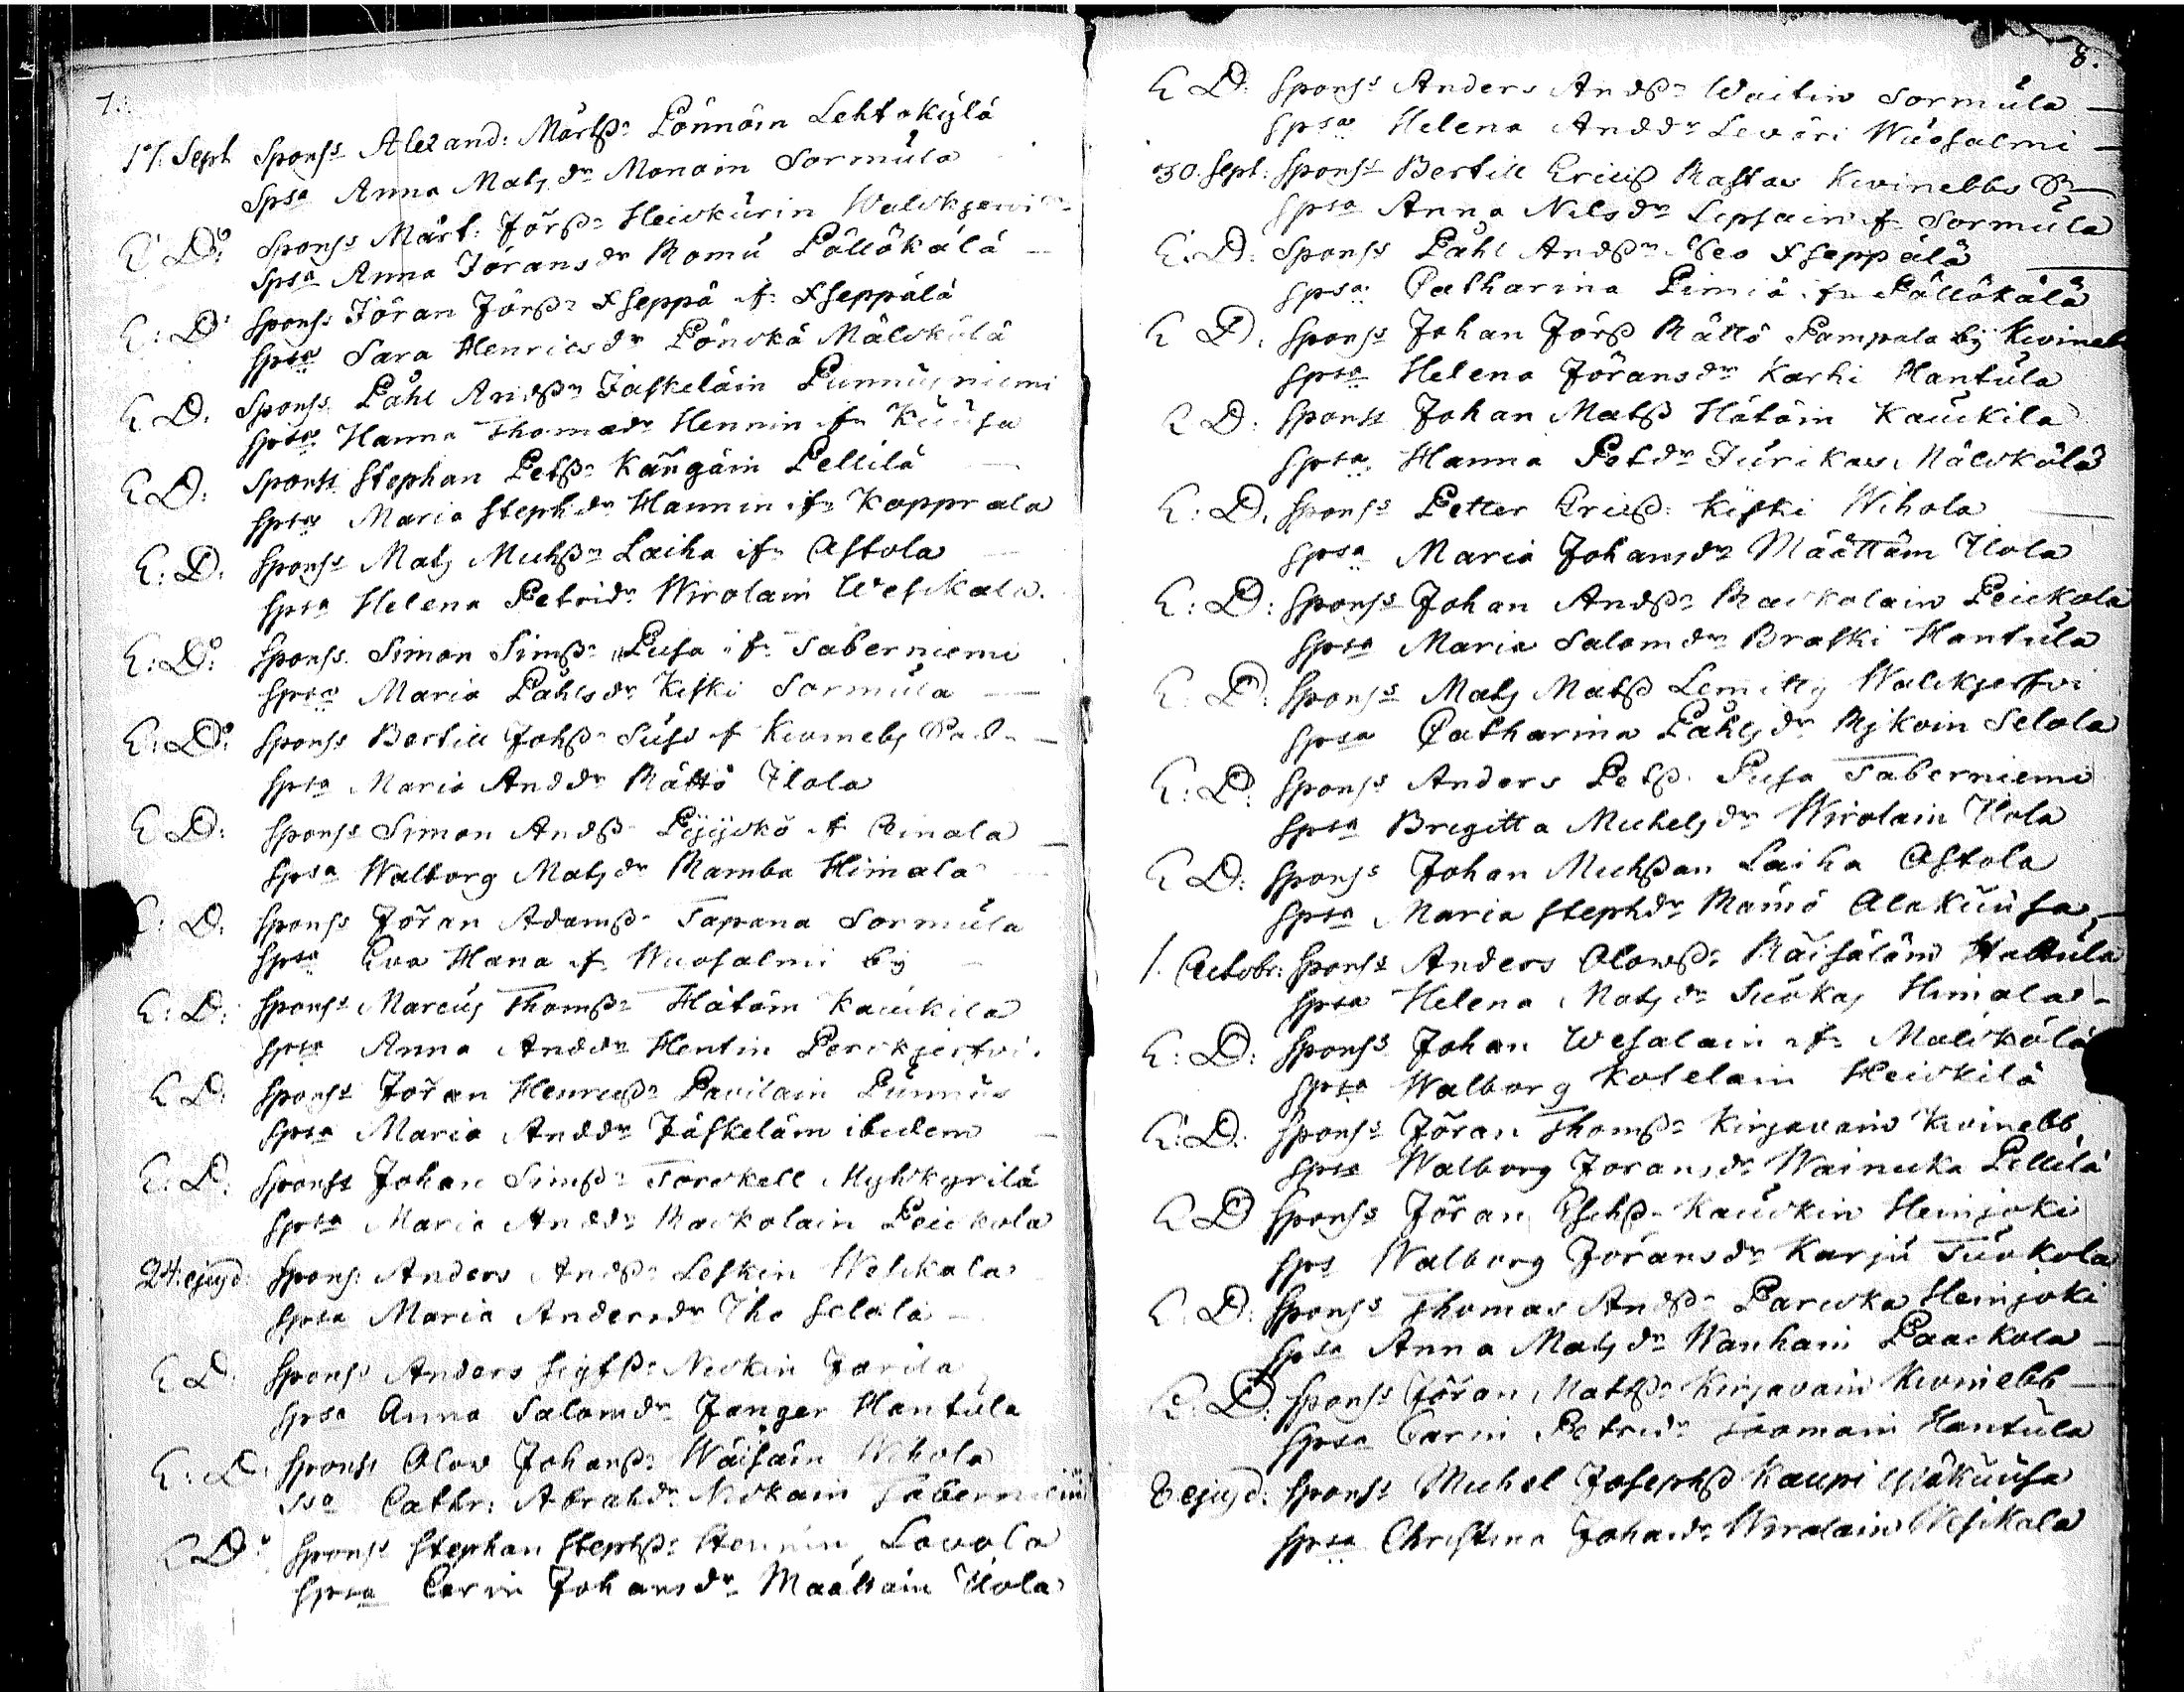 7.
17. Sept Spons: Alexand: Märtß: Pönnöin Lehtokylä
Spsa Anna Matsdr Monoin Sormula
E: Do: Spons: Märt: Jörß: Heickurin Walckjerwi
Spsa Anna Jöransdr Romu Pällökälä
E: D: Spons: Jöran Jörß: Sseppä f: Sseppälä
Spsa Sara Henricsdr Pönckä Mälckälä
E D: Spons: Påhl Andß: Jäskeläin Punnusniemi
Spsa Hanna Thomædr Hennin f: Kuusa
E D: Spons: Stephan Petß: Kängäin Pellilä
Spsa Maria Stephdr Hannin f: Kopprala
E: D: Spons: Mats Michß: Laiha f: Astola
Spsa Helena Petridr Wirolain Wesikala.
E: Do: Spons: Simon Simß: Pusa f: Taberniemi
Spsa Maria Påhlsdr Kiski Sormula
E: Do: Spons: Bertill Johß: Suss f Kivinebs
Spsa Maria Anddr Rättö Ilola
E D: Spons: Simon Andß Pÿÿckö f
Spsa Walborg Matsdr Ramba Himala
E: D. Spons: Jöran Adamß: Tapana Sormula
Spsa Eva Hana f: Wuosalmi by
E: D: Spons: Marcus Thomß: Hätöin Kauckila
Spsa Anna Anddr Hentin Perckjerfvi.
E D: Spons: Jöran Henricß: Pavilain Punnus
Spsa Maria Anddr Jäskeläin ibidem
E: D: Spons: Johan Simß: Torckell Myhckyrilä
Spsa Maria Anddr Rackolain Peickola
24. ejusd: Spons: Anders Andß: Leskin Wesikala
Spsa Maria Andersdr Iho Selola
E D: Spons: Anders Sigfß: Nickin Jarila
Spsa Anna Salomdr Janger Hantula
E: D: Spons: Olov Johanß: Wäisäin Wihola
Spsa Cathr: Abrahdr Nickain Taberniemi
E D: Spons: Stephan Stephß: Hennin Lavola
Spsa Carin Johansdr Määttäin Ilola
8.
E D: Spons: Anders Andß: Waitin Sormula
Spsa Helena Anddr Leväri Wuosalmi
30. Sept: Spons: Bertill Ericß Rastas Kivinebbs
Spsa Anna Nilsdr Lepsain f: Sormula
E: D: Spons: Påhl Andß: Sseppälä
Spsa Catharina Pimiä f: Pällökälä
E D. Spons: Johan Jörß Rättö Pampala by Kivineb
Spsa Helena Jöransdr Karhi Hantula
E D: Spons: Johan Matß Hätöin Kauckila
Spsa Hanna Petdr Jurikas Mälckölä
E: D. Spons: Petter Ericß: Kiski Wihola
Spsa Maria Johansdr Määttäin Ilola
E: D: Spons: Johan Andß: Rackolain Peickola
Spsa Maria Salomdr Braski Hantula
E: D: Spons: Mats Matß Lemitty Walckjerfvi
Spsa Catharina Påhlsdr Rjkoin Selola
E: D: Spons: Anders Petß Pusa Taberniemi
Spsa Bregitta Michelsdr Wirolain Ilola
E D: Spons: Johan Michßon Laiha Astola
Spsa Maria Stephdr Rämö Alakuusa
1. Octobr: Spons: Anders Olowß: Räisäläin Hattula
Spsa Helena Matsdr Himala
E: D: Spons: Johan Wesalain f: Mälckölä
Spsa Walborg Koselain Heickilä
E: D: Spons: Jöran Thomß: Kirjavain Kivinebb
Spsa Walborg Joransdr Wainicka Pellilä
E D Spons: Jöran Eschß: Kauckin Heinjoki
Sps Walborg Jöransdr Karju Tuokola
E. D: Spons: Thomas Andß: Parckka Heinjoki
Spsa Anna Matsdr Wanhain Paackola
E: D: Spons: Jöran Matß: Kirjavain Kivinebb
Spsa Carin Petridr Hantula
8 ejusd: Spons: Michel Josephß Kaupi Ylökuusa
Spsa Christina Johandr Wirolain Wesikala